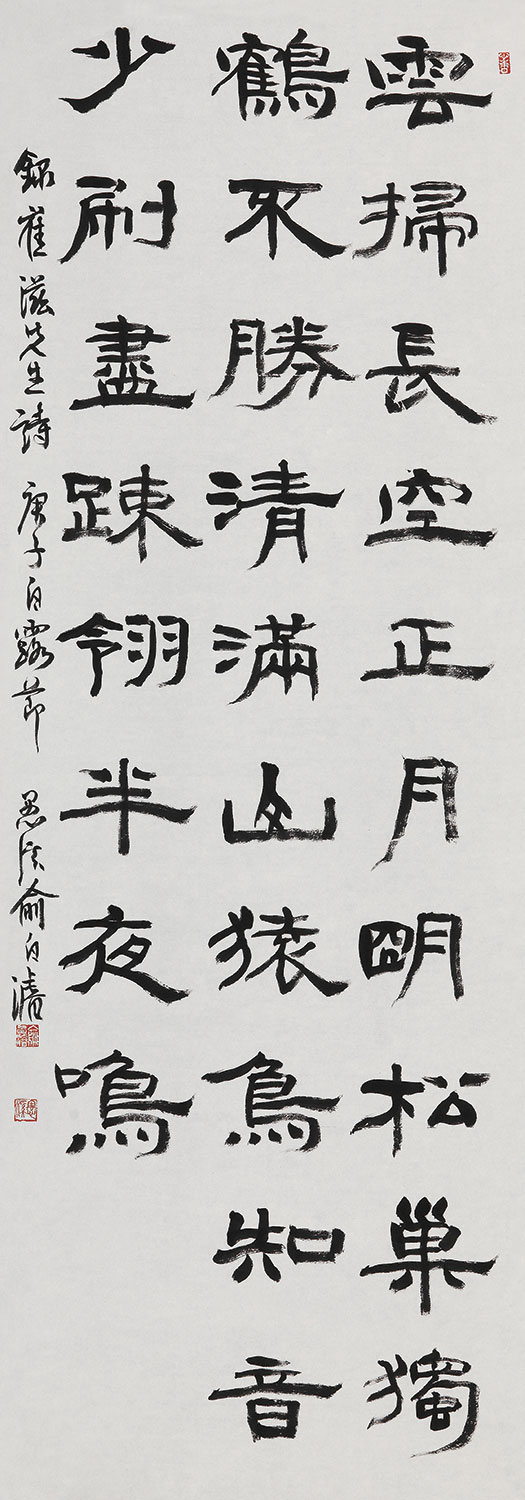 雲掃長空正月明松巢獨
鶴不勝清滿山猿鳥知音
少刷盡踈翎半夜鳴
錄崔滋先生詩 庚子白露節 愚溪俞白濤